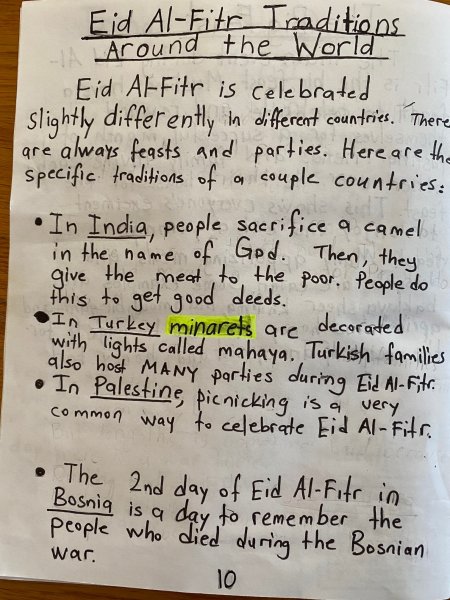 Eid Al-Fitr Traditions
Around the World
Eid Al-Fitr is celebrated
slightly differently in different countries. There
are always feasts and parties. Here are the
specific traditions of a couple countries:
• In India, people sacrifice a camel
in the name of God. Then, they
give the meat to the poor. People do
this to get good deeds.
• In Turkey minarets are decorated
with lights called mahaya. Turkish families
also host MANY parties during Eid Al-Fitr.
• In Palestine, picnicking is a very
common way to celebrate Eid Al-Fitr.
• The 2nd day of Eid Al-Fitr in
Bosnia is a day to remember the
people who died during the Bosnian
war.
10